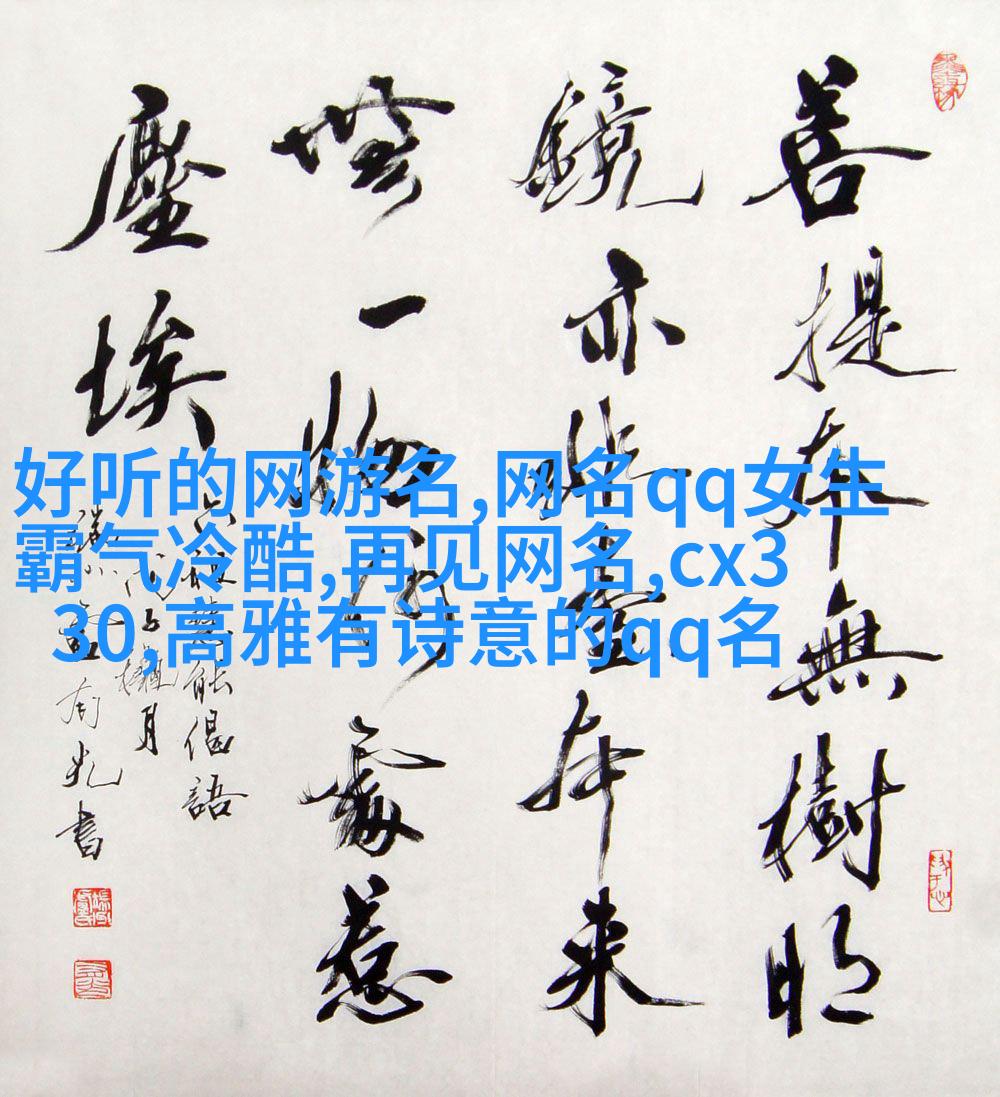 好听的网游名,网名qq女生
霸气冷酷,再见网名,cx3
30,高雅有诗意的qq名
菩提本無樹明
鏡亦非臺本来
無一物何處惹
塵埃
六祖慧能偈語
戊子月
書